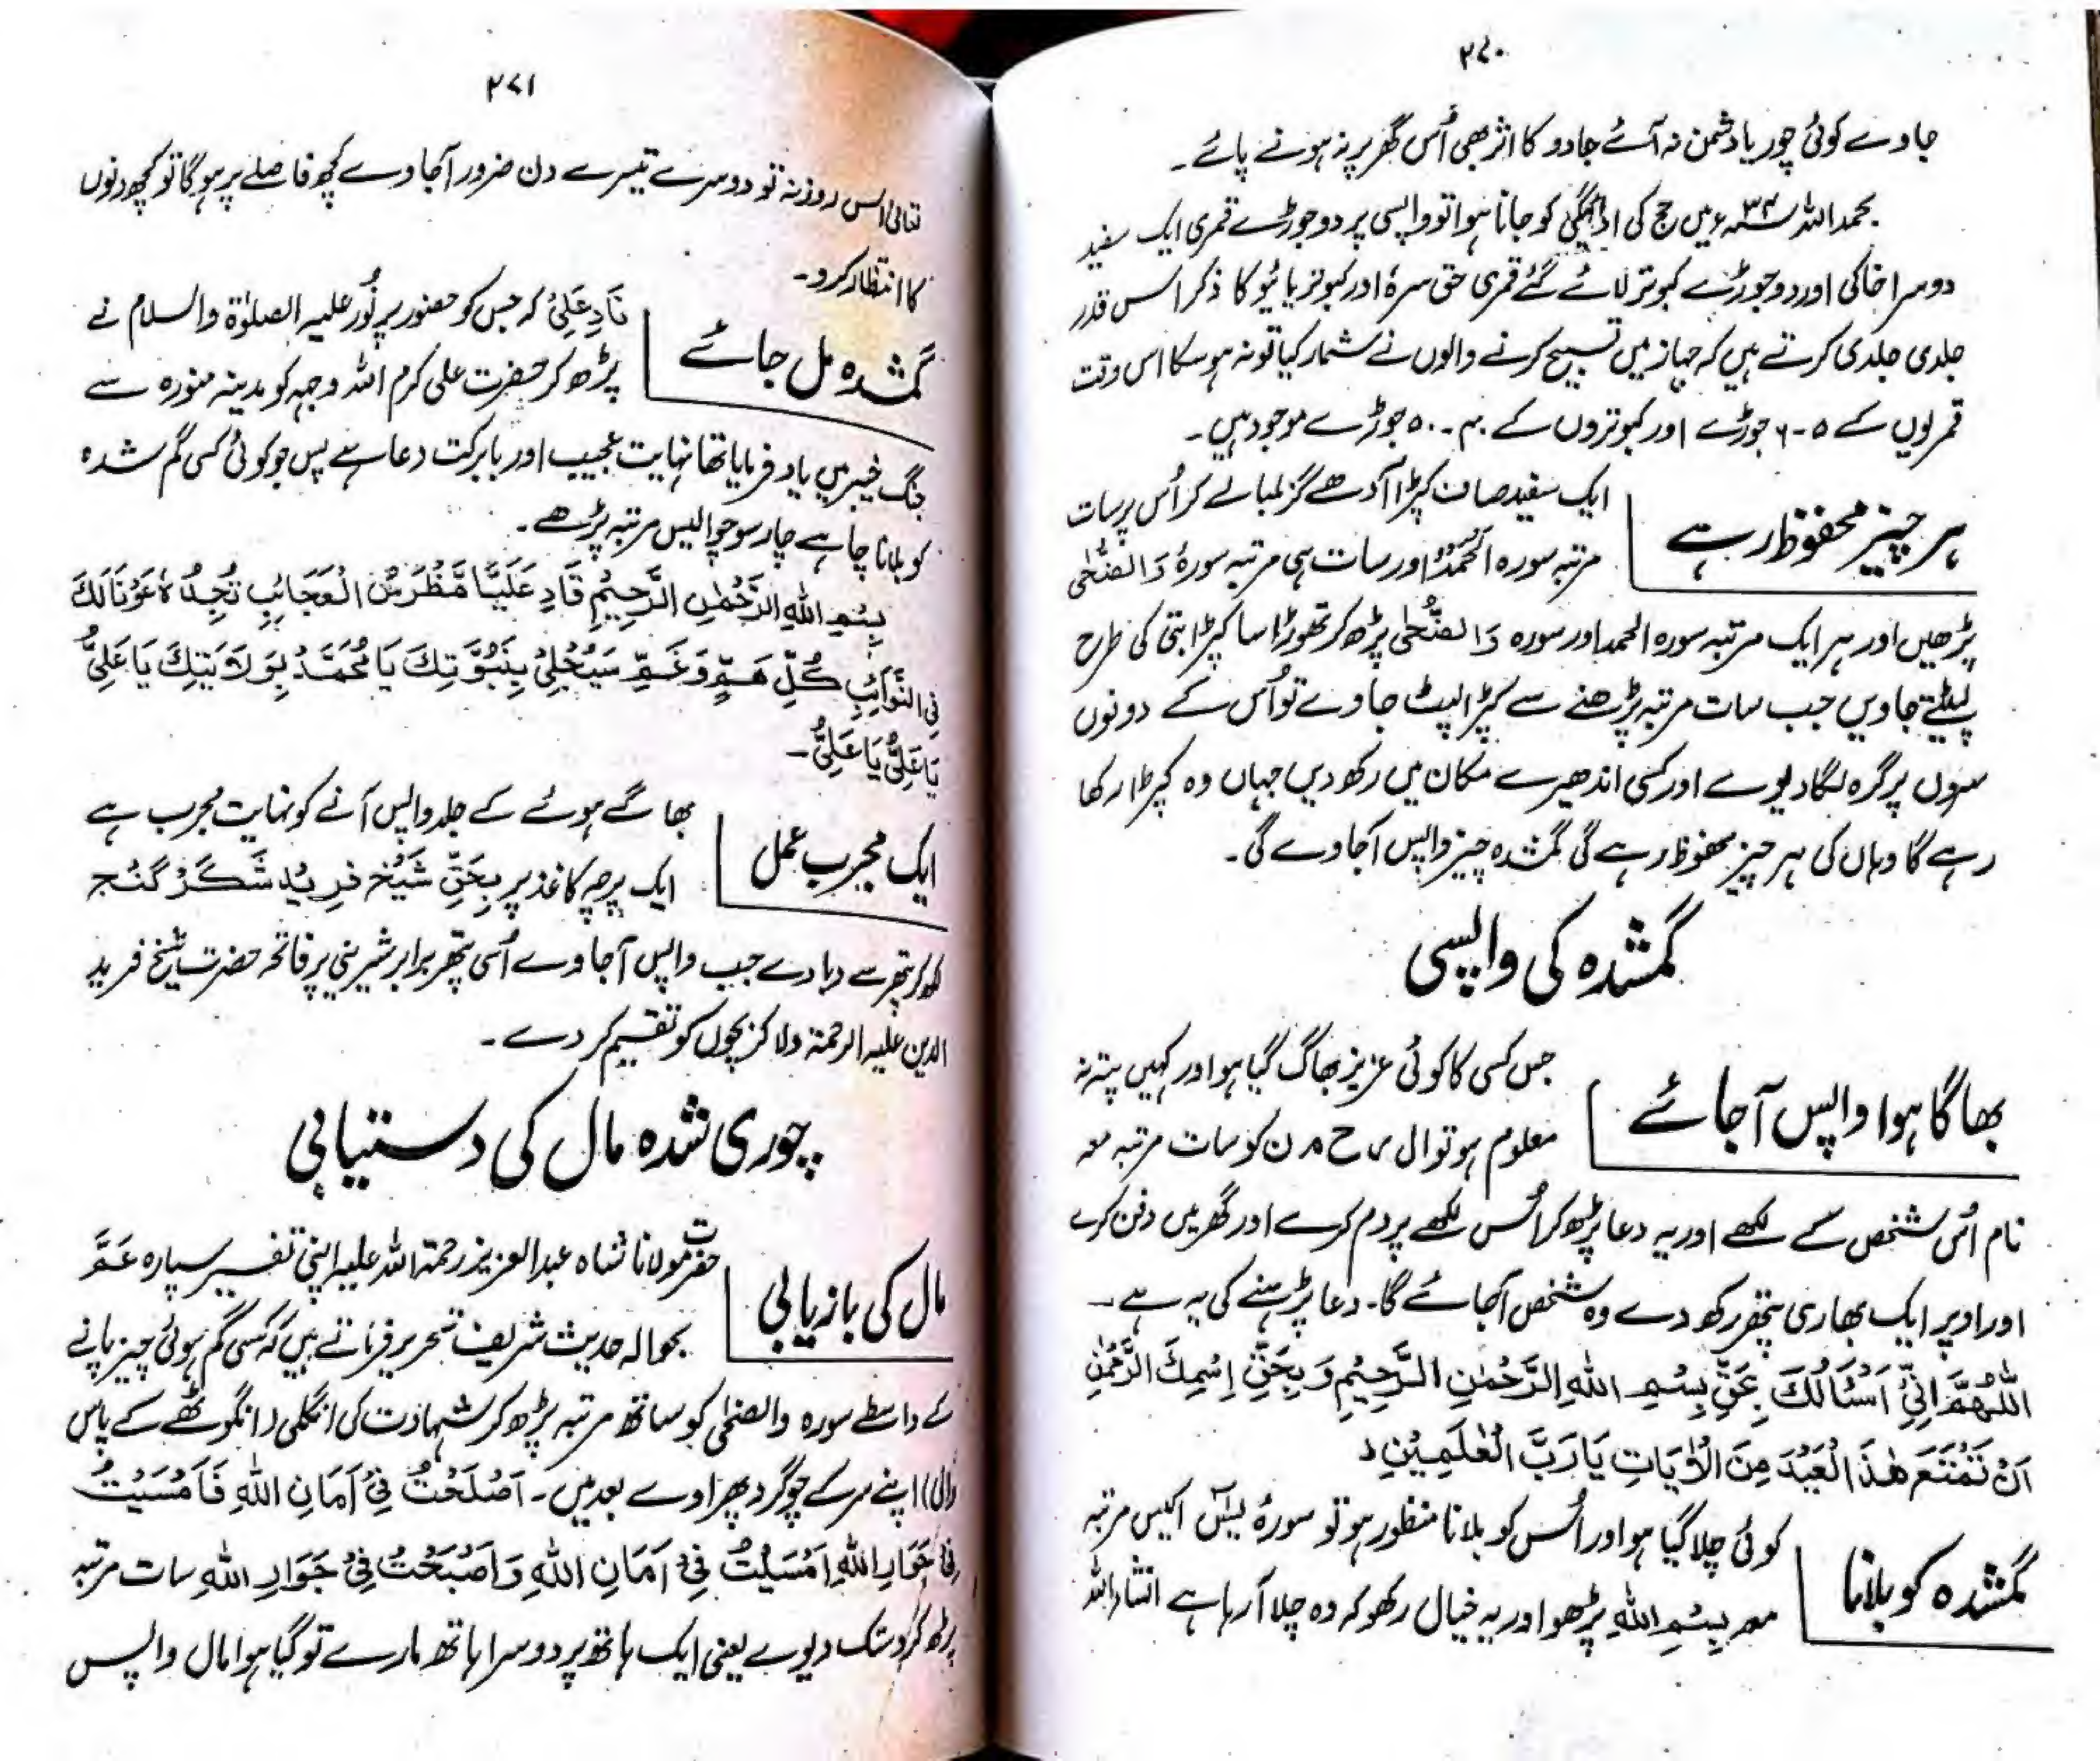 ۲۷۰
جاوے کوئی چور یا دشمن نہ آئے جادو کا اثر بھی اُس گھر پر نہ ہونے پائے۔
بحمد اللہ ۳۴ء میں حج کی ادائیگی کو جانا ہوا تو واپسی پر دو جوڑے قمری ایک سفید
دوسرا خاکی اور دو جوڑے کبوتر لائے گئے قمری حق سرہٗ اور کبوتر یا ہُو کا ذکر اس قدر
جلدی جلدی کرتے ہیں کہ جہاز میں تسبیح کرنے والوں نے شمار کیا تو نہ ہو سکا اس وقت
قمریوں کے ۵-۶ جوڑے اور کبوتروں کے ۴۰-۵۰ جوڑے موجود ہیں۔
ہر چیز محفوظ رہے
ایک سفید صاف کپڑا آدھے گز لمبا لے کر اُس پر سات
مرتبہ سورہ الحمد اور سات ہی مرتبہ سورۂ والضحٰی
پڑھیں اور ہر ایک مرتبہ سورہ الحمد اور سورہ والضحٰی پڑھ کر تھوڑا سا کپڑا بتی کی طرح
لپیٹتے جاویں جب سات مرتبہ پڑھنے سے کپڑا لپٹ جاوے تو اُس کے دونوں
سروں پر گرہ لگا دیوے اور کسی اندھیرے مکان میں رکھ دیں جہاں وہ کپڑا رکھا
رہے گا وہاں کی ہر چیز محفوظ رہے گی گمشدہ چیز واپس آجاوے گی۔
گمشدہ کی واپسی
بھاگا ہوا واپس آجائے
جس کسی کا کوئی عزیز بھاگ گیا ہو اور کہیں پتہ نہ
معلوم ہو تو ال ر ح م ن کو سات مرتبہ معہ
نام اُس شخص کے لکھے اور یہ دعا پڑھ کر اُس لکھے پر دم کرے اور گھر میں دفن کرے
اور اوپر ایک بھاری پتھر رکھ دے وہ شخص آجائے گا۔ دعا پڑھنے کی یہ ہے۔
اَللّٰهُمَّ اِنِّیْ اَسْئَالُكَ بِحَقِّ بِسْمِ اللهِ الرَّحْمٰنِ الرَّحِيْمِ وَ بِحَقِّ اِسْمِكَ الرَّحْمٰنِ
اَنْ تَمْنَعَ هٰذَا الْعَبْدَ مِنَ الْاٰيَاتِ يَا رَبَّ الْعٰلَمِيْنِ
گمشدہ کو بلانا
کوئی چلا گیا ہو اور اُس کو بلانا منظور ہو تو سورۂ یٰسٓ اکیس مرتبہ
معہ بِسْمِ اللهِ پڑھو اور یہ خیال رکھو کہ وہ چلا آرہا ہے انشاء اللہ
۲۷۱
تعالیٰ اس روز نہ تو دوسرے تیسرے دن ضرور آجاوے کچھ فاصلے پر ہوگا تو کچھ دنوں
کا انتظار کرو۔
گمشدہ مل جائے
نَادِ عَلِیْ کہ جس کو حضور پر نُور علیہ الصلوٰۃ والسلام نے
پڑھ کر حضرت علی کرم اللہ وجہہ کو مدینہ منورہ سے
جنگ خیبر میں یاد فرمایا تھا نہایت عجیب اور بابرکت دعا ہے پس جو کوئی کسی گم شدہ
کو بلانا چاہے چار سو چوالیس مرتبہ پڑھے۔
بِسْمِ اللهِ الرَّحْمٰنِ الرَّحِيْمِ نَادِ عَلِيًّا مَّظْهَرَ الْعَجَائِبِ تَجِدْهُ عَوْنَالَكَ
فِی النَّوَآئِبِ كُلِّ هَمٍّ وَ غَمٍّ سَيَنْجَلِیْ بِنُبُوَّتِكَ يَا مُحَمَّدُ بِوَلَايَتِكَ يَا عَلِیُّ
يَا عَلِیُّ يَا عَلِیُّ۔
ایک مجرب عمل
بھاگے ہوئے کے جلد واپس آنے کو نہایت مجرب ہے
ایک پرچہ کاغذ پر بِحَقِّ شَیْخْ فَرِیْد شَکَرْ گَنْج
لکھ کر پتھر سے دبا دے جب واپس آجاوے اُسی پتھر برابر شیرینی پر فاتحہ حضرت شیخ فرید
الدین علیہ الرحمۃ دلا کر بچوں کو تقسیم کر دے۔
چوری شدہ مال کی دستیابی
مال کی بازیابی
حضرت مولانا شاہ عبدالعزیز رحمۃ اللہ علیہ اپنی تفسیر سیپارہ عَمَّ
بحوالہ حدیث شریف تحریر فرماتے ہیں کہ کسی گم ہوئی چیز پانے
کے واسطے سورہ والضحٰی کو ساتھ مرتبہ پڑھ کر شہادت کی انگلی (انگوٹھے کے پاس
والی) اپنے سر کے چوگرد پھراوے بعد میں۔ اَصْلَحْتُ فِیْ اَمَانِ اللهِ فَاَمْسَيْتُ
فِیْ جَوَارِ اللهِ اَمْسَيْتُ فِیْ اَمَانِ اللهِ وَ اَصْبَحْتُ فِیْ جَوَارِ اللهِ سات مرتبہ
پڑھ کر دستک دیوے یعنی ایک ہاتھ پر دوسرا ہاتھ مارے تو گیا ہوا مال واپس